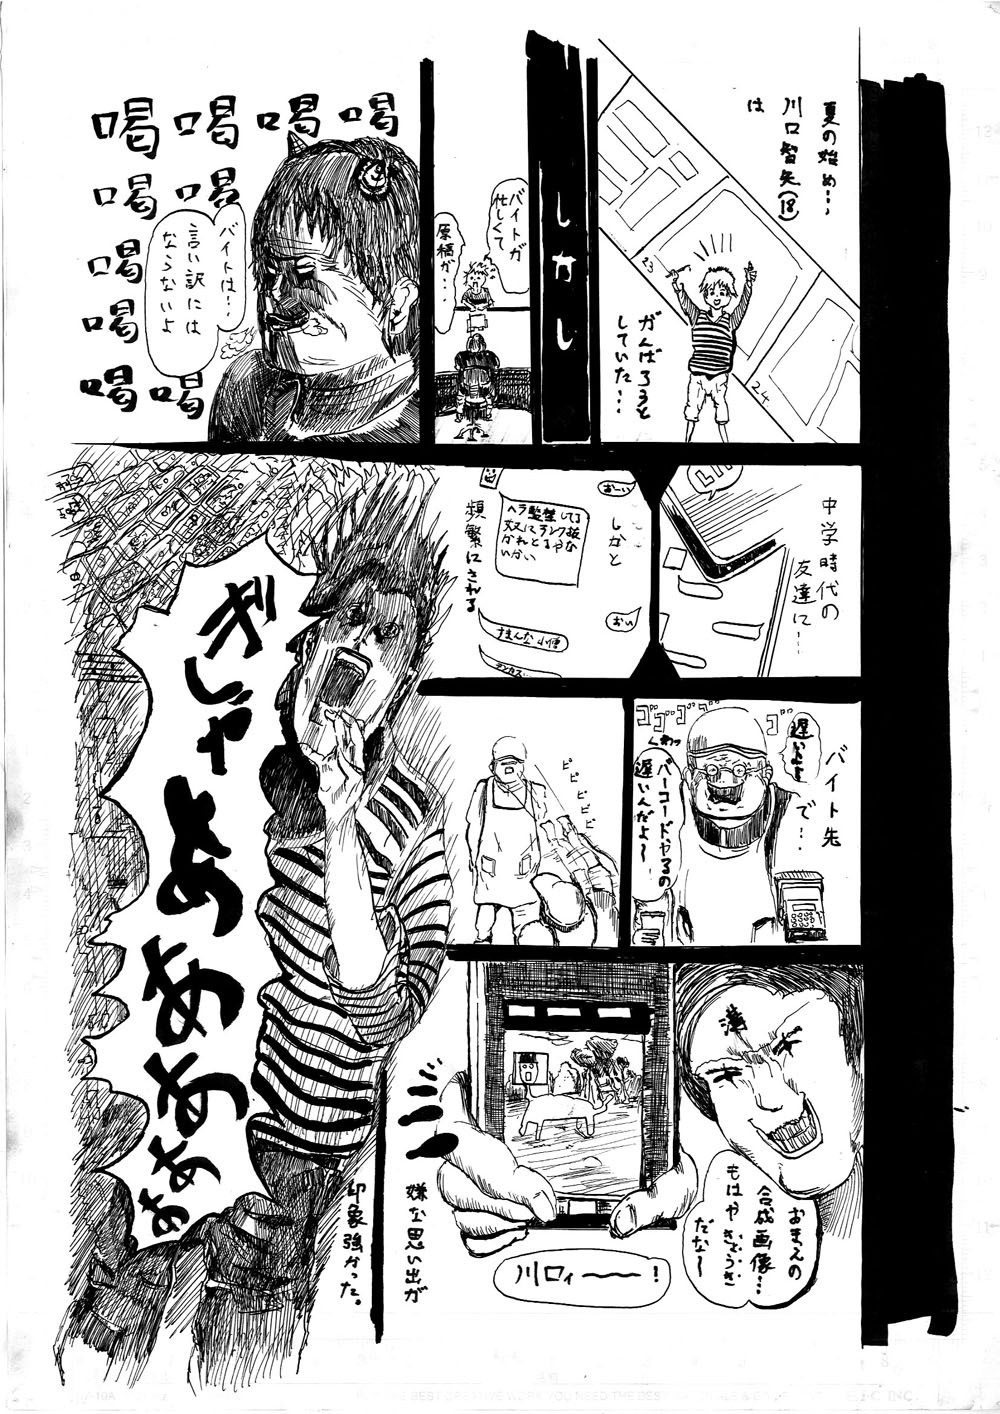 夏の始め…、
川口智矢(18)
は
23
24
がんばろうと
していた…
しかし
バイトが
忙しくて
原稿が…
喝 喝 喝 喝
喝 喝
喝
喝
喝 喝
バイトは…
言い訳には
ならないよ
中学時代の
友達に…
おーい
しかと
おい
すまんな小便
頻繁にされる
バイト先
で…
遅いよ
ゴゴゴゴ
ゴ
くわっ
バーコードやるの
遅いんだよ〜
ピピピピピ
おまえの
合成画像…
もはやきぞうき
だな〜
川口ィーー!
嫌な思い出が
印象強かった。
ぎしゃああああああ